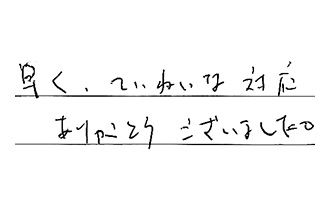 早く、ていねいな対応
ありがとうございました。